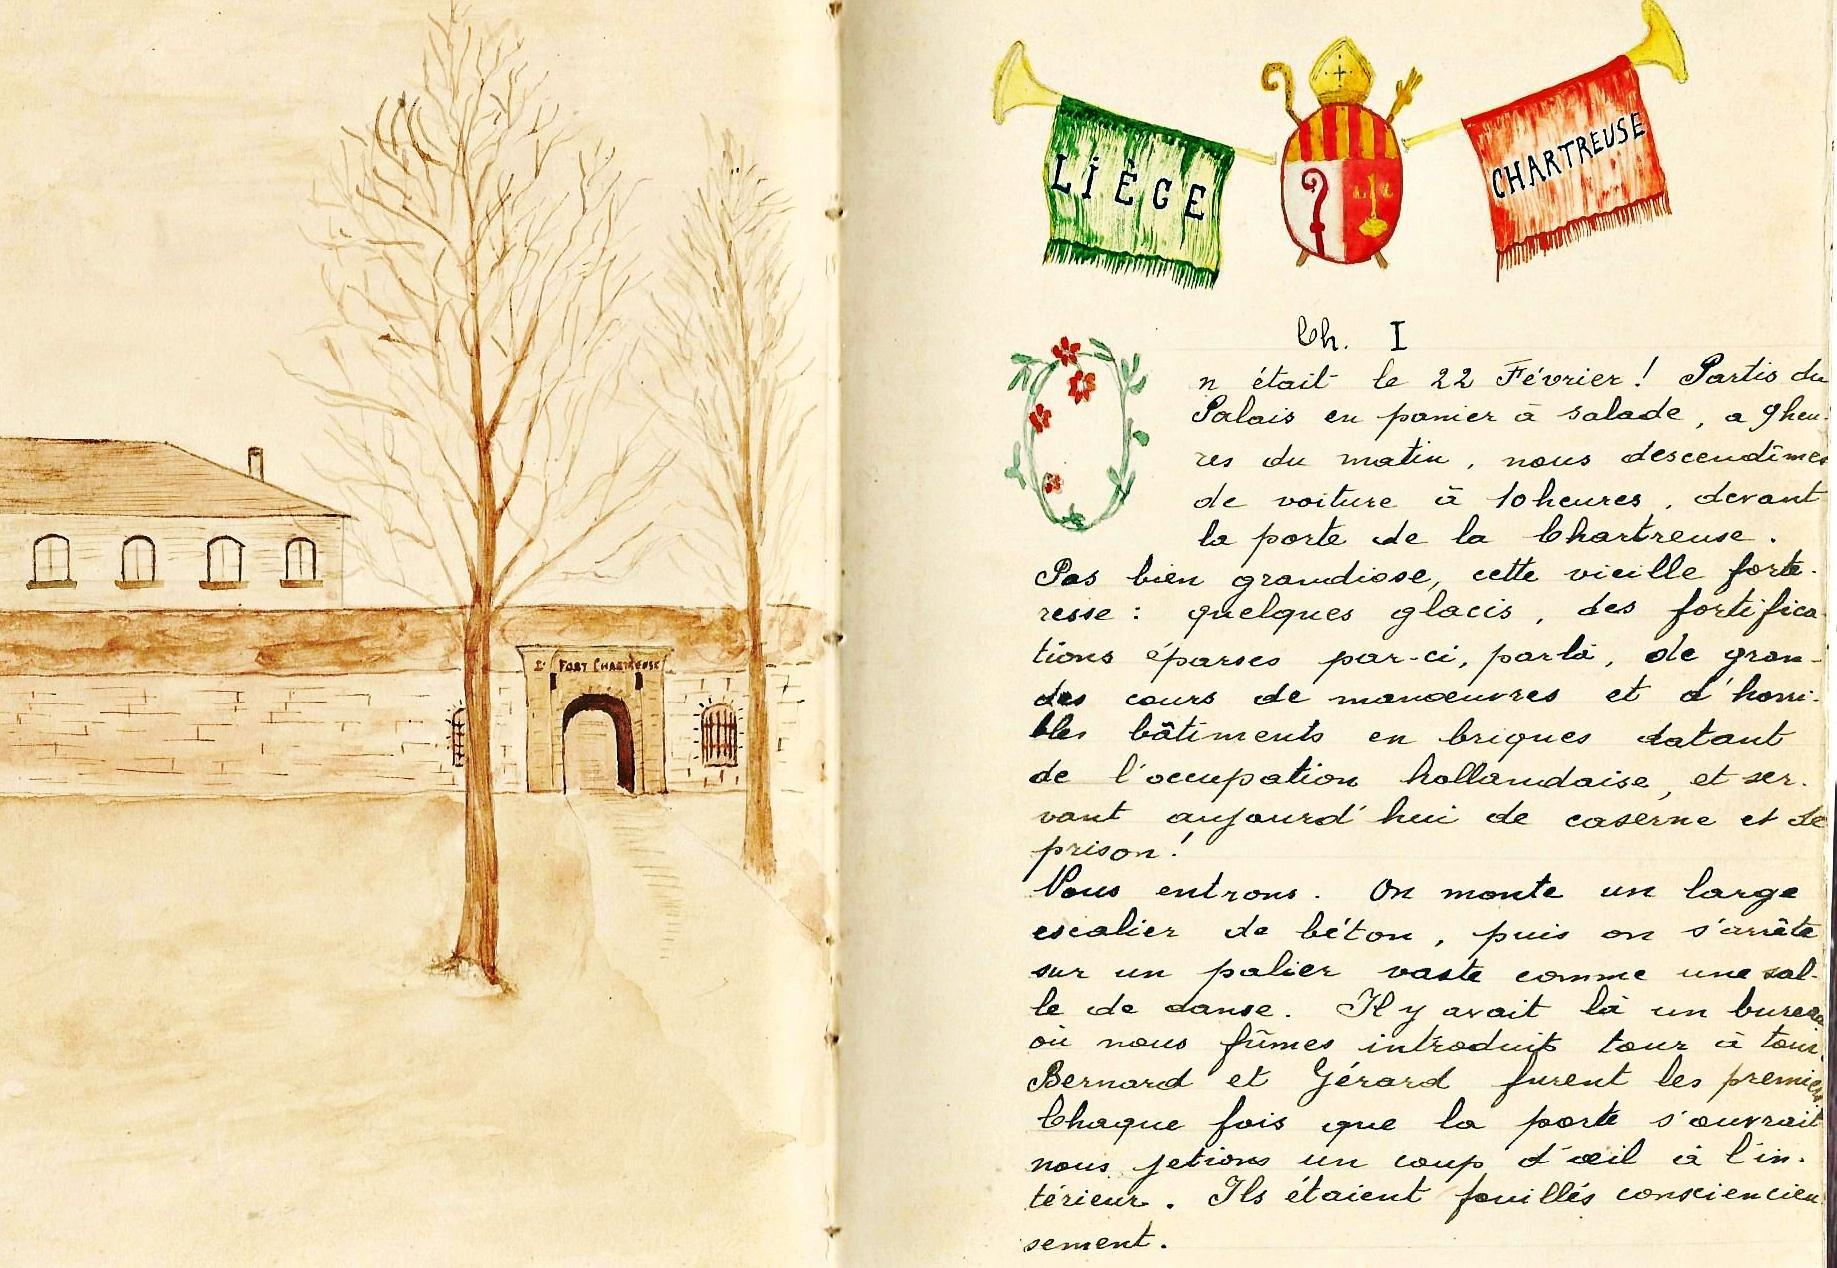 Sᵗ FORT CHARTREUSE
LIÈGE
CHARTREUSE
Ch. I
On était le 22 Février ! Partis du
Palais en panier à salade, a 9 heu-
res du matin, nous descendîmes
de voiture à 10 heures, devant
la porte de la Chartreuse.
Pas bien grandiose, cette vieille forte-
resse : quelques glacis, des fortifica-
tions éparses par-ci, par là, de gran-
des cours de manœuvres et d'horri-
bles bâtiments en briques datant
de l'occupation hollandaise, et ser-
vant aujourd'hui de caserne et de
prison !
Nous entrons. On monte un large
escalier de béton, puis on s'arrête
sur un palier vaste comme une sal-
le de danse. Il y avait là un bureau
où nous fûmes introduits tour à tour.
Bernard et Gérard furent les premiers
Chaque fois que la porte s'ouvrait
nous jetions un coup d'œil à l'in-
térieur. Ils étaient fouillés consciencieu
sement.